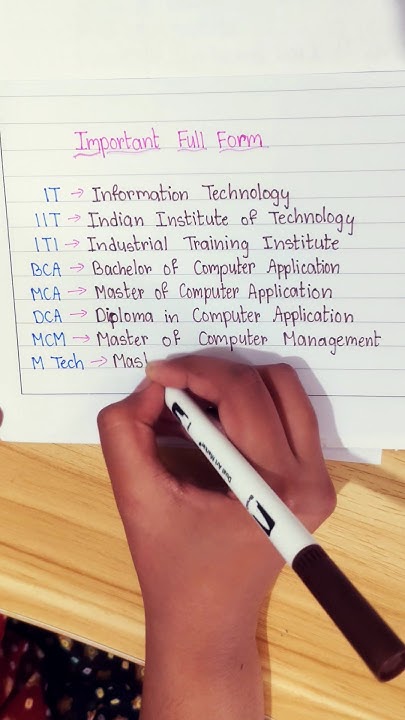 Important Full Form
IT → Information Technology
IIT → Indian Institute of Technology
ITI → Industrial Training Institute
BCA → Bachelor of Computer Application
MCA → Master of Computer Application
DCA → Diploma in Computer Application
MCM → Master of Computer Management
M Tech → Mast
Dual Art Marker